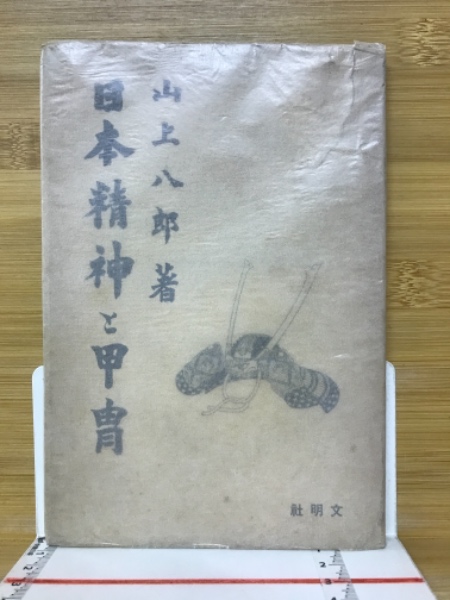 山上八郎著
日本精神と甲冑
文明社